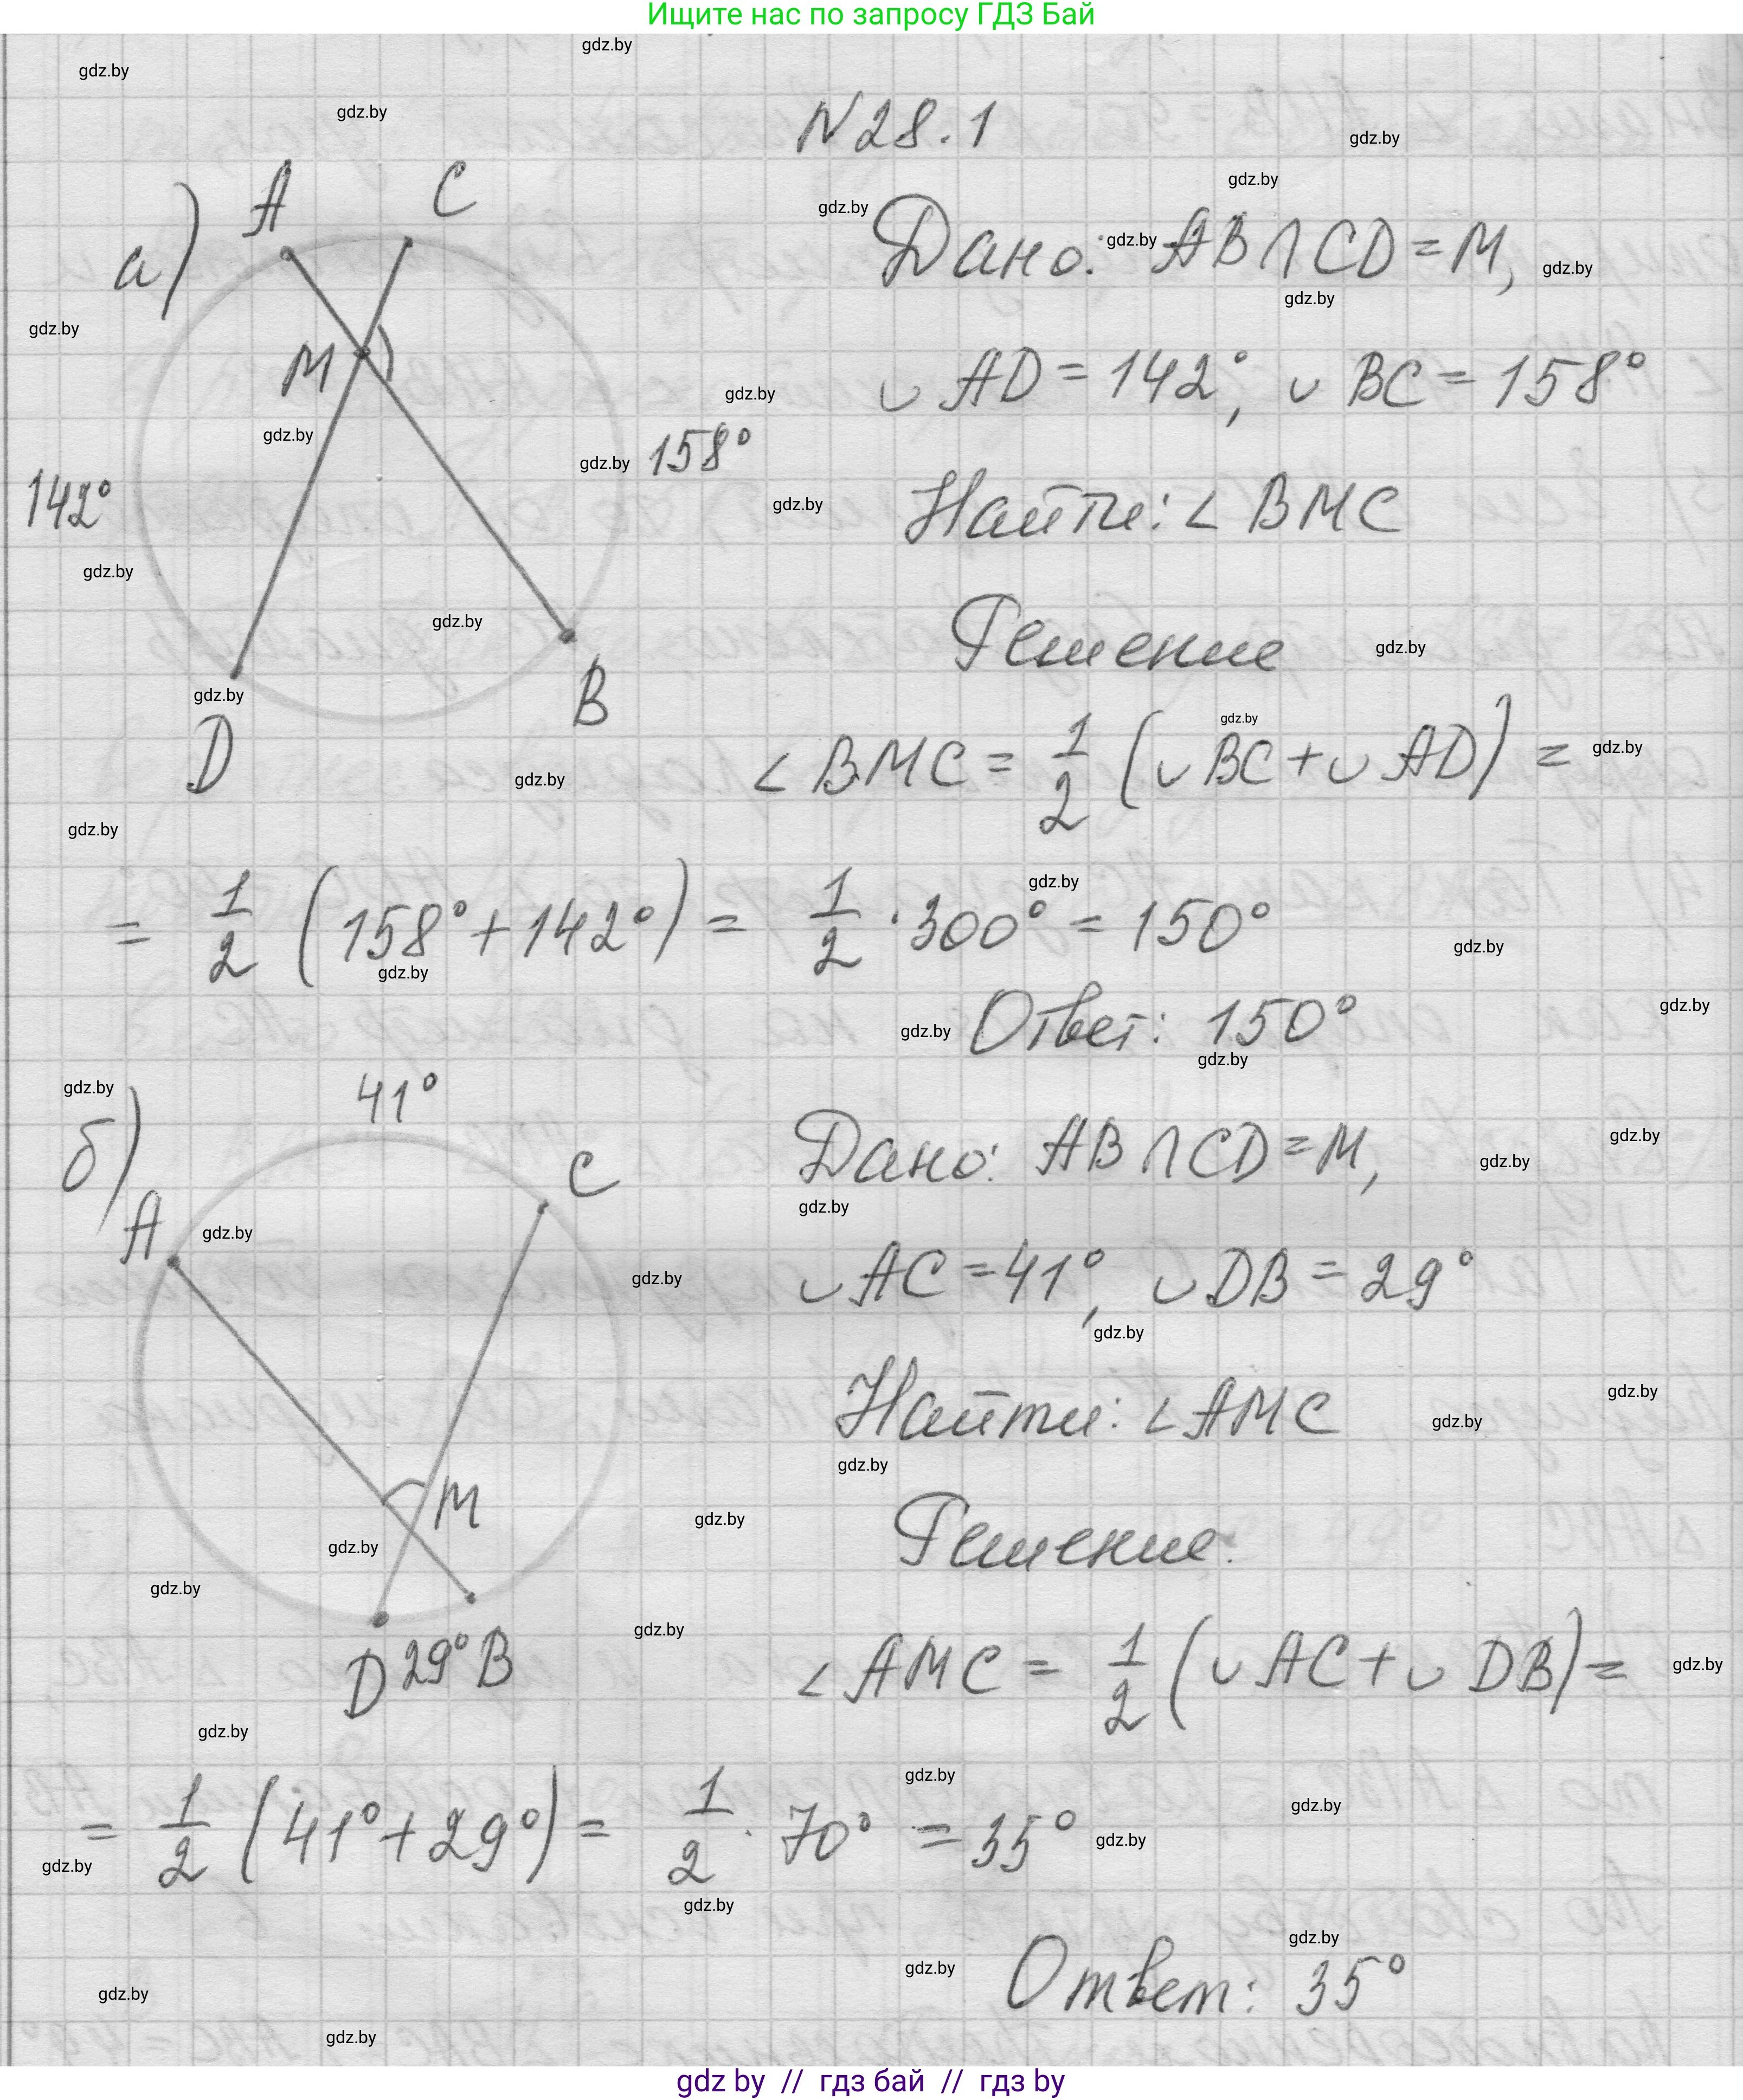 Ищите нас по запросу ГДЗ Бай
N 28.1
а)
A
C
M
142°
158°
D
B
Дано: AB ∩ CD = M,
◡ AD = 142°, ◡ BC = 158°
Найти: ∠ BMC
Решение
∠ BMC = 1/2 (◡ BC + ◡ AD) =
= 1/2 (158° + 142°) = 1/2 · 300° = 150°
Ответ: 150°
б)
41°
A
C
M
D 29° B
Дано: AB ∩ CD = M,
◡ AC = 41°, ◡ DB = 29°
Найти: ∠ AMC
Решение.
∠ AMC = 1/2 (◡ AC + ◡ DB) =
= 1/2 (41° + 29°) = 1/2 · 70° = 35°
Ответ: 35°
gdz by // гдз бай // гдз by